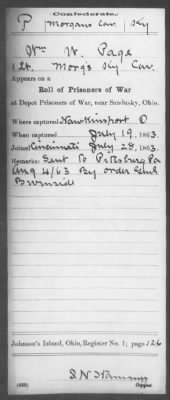 Confederate.
P Morgans Cav. Ky
Wm W. Page
1 Lt. Morg's Ky Cav.
Appears on a
Roll of Prisoners of War
at Depot Prisoners of War, near Sandusky, Ohio.
Where captured Hawkinsport O
When captured July 19, 1863.
Joined Cincinnati July 28, 1863.
Remarks: Sent to Pittsburg Pa
Aug. 4/63 By order Genl
Burnside
Johnson's Island, Ohio, Register No. 1; page 126
(639)
Copyist.